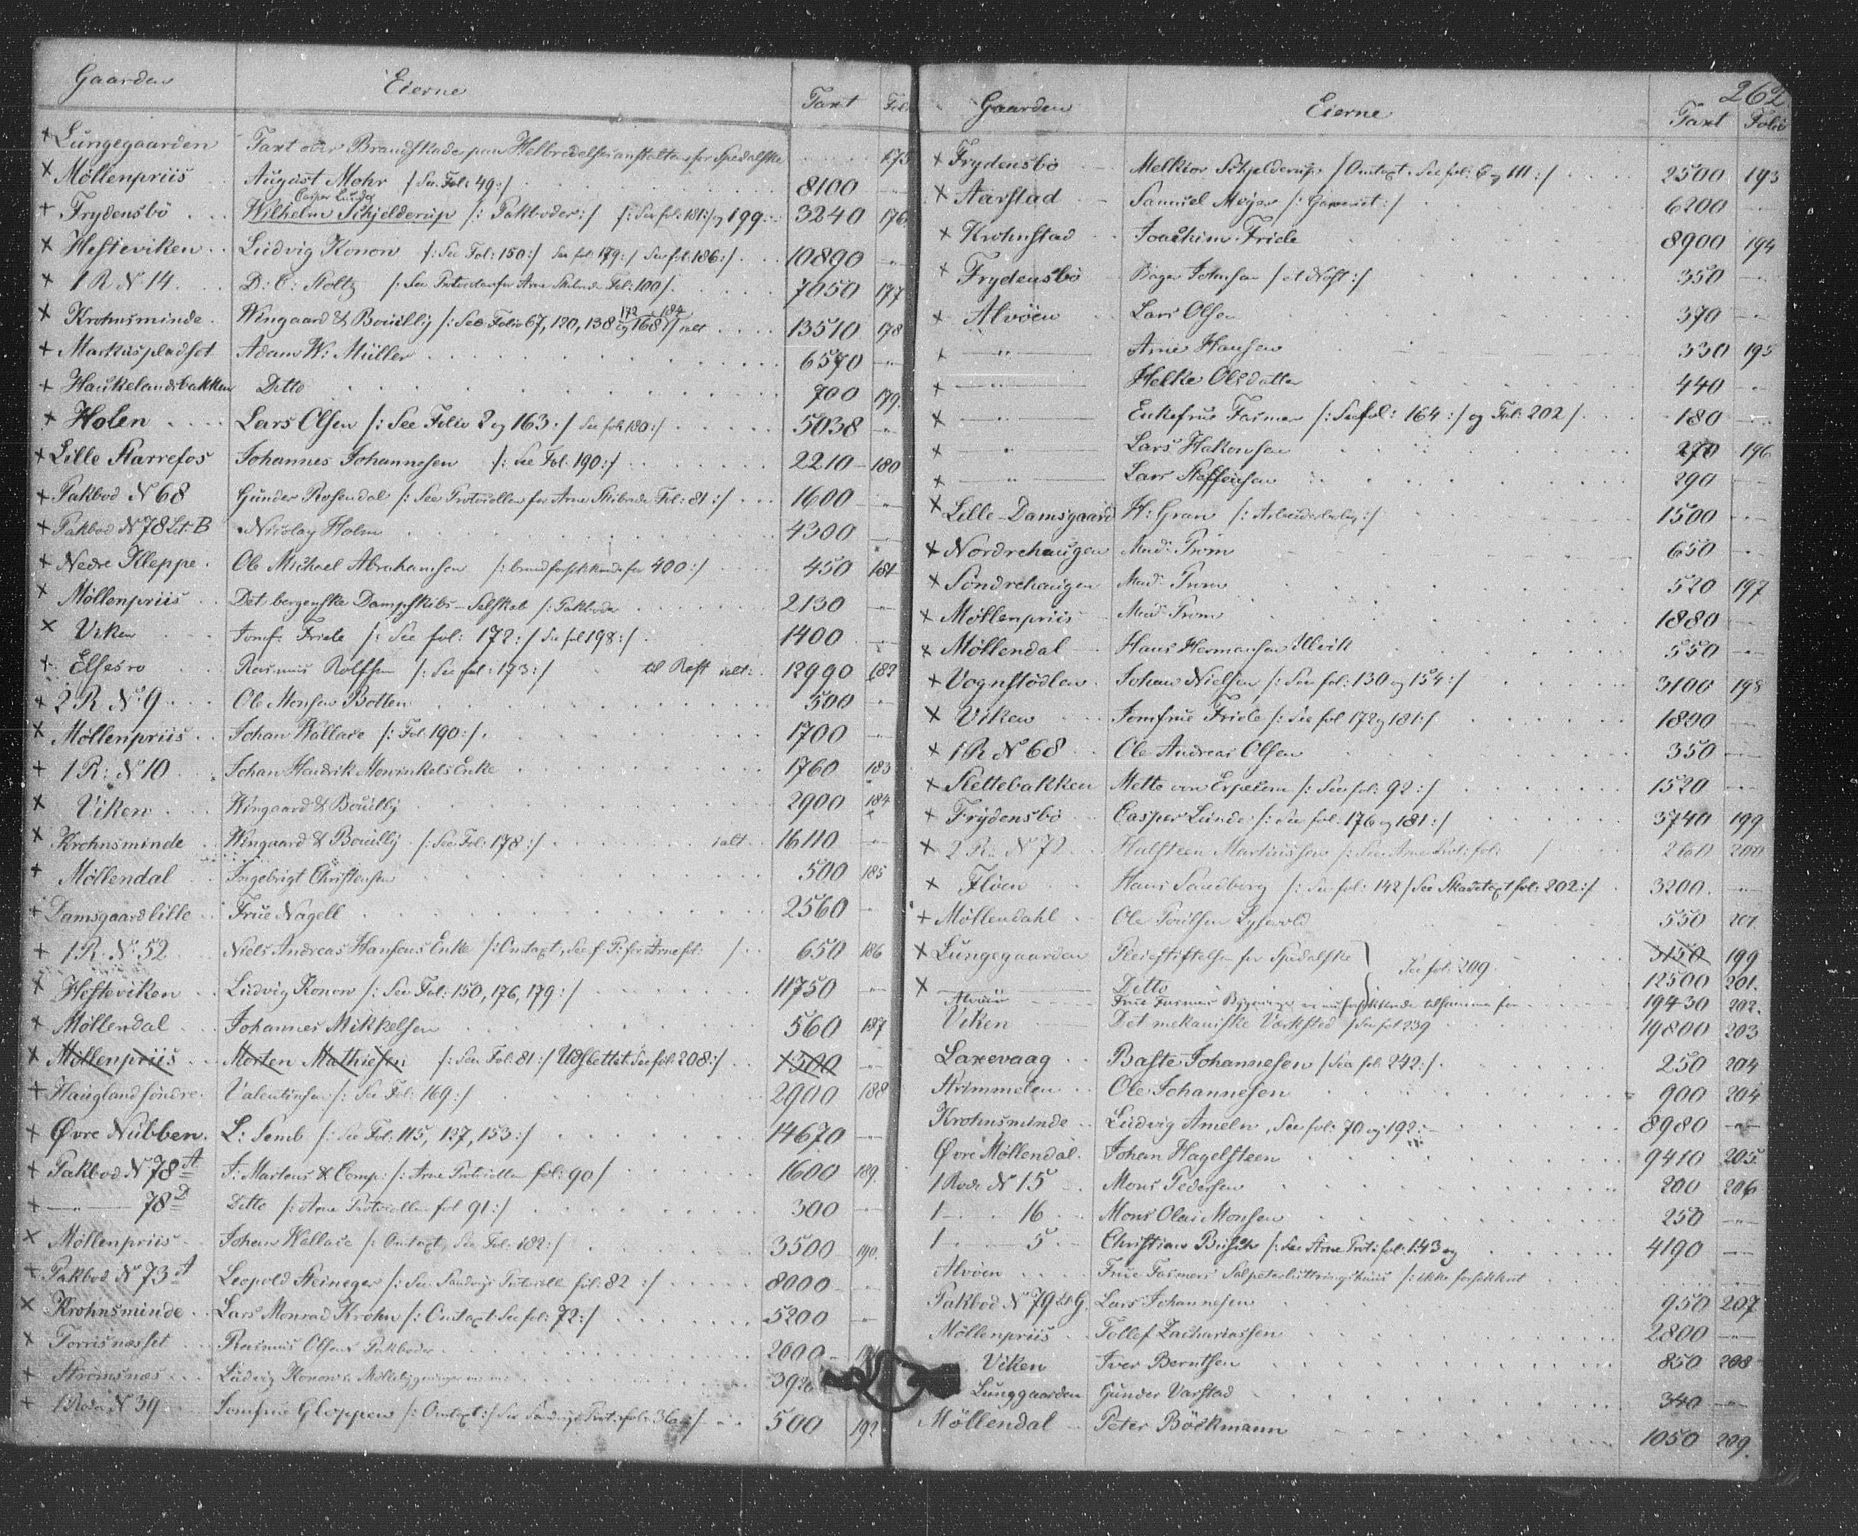 Gaarden Eierne Taxt Fol:
+ Lungegaarden Taxt over Brandskade paa Helbredelsesanstalten for Spedalske . . . . 175
x Möllenpriis August Mohr /: See Fol: 49 :/ 8100 —
Casper Lunde
+ Frydensbö Wilhelm Schjelderup /: Pakboder :/ /: See fol: 181 :/ og 199 3240 176
x Hefteviken Ludvig Konow /: See Fol: 150 :/ See fol: 179 :/ See fol. 186 :/ 10890 -"-
+ 1 R N 14 D: C: Stoltz /: See Protocolen for Arne Fol: 100 /. 7050 177
172 184
x Krohnsminde Wingaard & Bouilly /: See Folio 67, 120, 138 og 168 :/ ialt 13510 178
+ Markuspladset Adam W: Müller 6570 -"-
+ Haukelandsbakken Ditto 700 179.
+ Holen Lars Olsen /: See Folio 2 og 163 :/ See fol. 180 :/ 5038 -"-
+ Lille Starrefos Johannes Johannesen /: See Fol. 190 :/ 2210 180
+ Pakbod N 68 Günder Rosendal /: See Protocollen for Arne Fol: 81 :/ 1600 -"-
+ Pakbod N 78 Lt: B Nicolay Holm 4300 -"-
+ Nedre Kleppe Ole Michael Abrahamsen for 400 :/ 450 181
x Möllenpriis Det bergenske Dampskibs-Selskab /: Pakboder 2130 -"-
x Viken Jomf: Friele /: See fol: 172 :/ See fol 198 :/ 1400 -"-
+ Elsesro Rasmus Rolfsen /: See fol: 173 :/ til Rest ialt: 12990 182
+ 2 R. N: 9 Ole Monsen Botten 500 -"-
x Möllenpriis Johan Wallace /: Fol. 190 :/ 1700 -"-
+ 1 R: N 10 Johan Hendrik Mowinkels Enke 1760 183
x Viken Wingaard & Bouilly 2900 184
x Krohnsminde Wingaard & Bouilly /: See Fol: 178 :/ ialt 16110 -"-
+ Möllendal Ingebrigt Christensen 500 185
+ Damsgaard lille Frue Nagell 2560 -"-
+ 1 R: N: 52 Niels Andreas Hansens Enke /: Omtaxt, See f. P: for Arne fol: /. 650 186
x Hefteviken Ludvig Konow /: See Fol: 150, 176, 179 :/ 11750 -"-
+ Möllendal Johannes Mikkelsen 560 187
x Möllenpriis Morten Mathiesen /: See Fol: 81 :/ Udslettet See fol. 208 :/ 1300 -"-
+ Haugland söndre Valentinsen /: See Fol: 169 :/ 2900 188
+ Øvre Nübben L: Semb /: See Fol: 115, 137, 153 :/ 14670 -"-
+ Pakbod N 78 A F: Martens & Comp: /: Arne Protocollen fol: 90 / 1600 189.
+ —"— 78 D Ditto /: Arne Protocollen fol 91 :/ 300 -"-
x Möllenpriis Johan Wallace /: Omtaxt, See Fol: 182 :/ 3500 190.
+ Pakbod N 73 A Leopold Steineger /: See Sandvigs Protocoll fol: 82 :/ 8000 -"-
x Krohnsminde Lars Monrad Krohn /: Omtaxt See fol: 72 :/ 5200 -"-
+ Torrisnæsset Rasmus Olsens Pakboder 2000
+ Strömsnæs Ludvig Konow
+ 1 Rode N 39 Jomfrue Gloppen /: Omtaxt :/ See Sandvigs Prot: fol: 36 :/ 500 192
262
Gaarden Eierne Taxt Folio
+ Frydensbö Melkior Schjelderup / Omtaxt. See fol: 6 og 111 :/ 2500 193
x Aarstad Samuel Meyer /: :/ 6200 -"-
x Krohnstad Joachim Friele 8900 194
+ Frydensbö Johnsen / et Nöst :/ 350 -"-
x Alvöen Lars Olsen 370 -"-
x —"— Arne Hansen 330 195
+ —"— Helke Olsdatter 440 -"-
x —"— Enkefrue Fasmer /: See fol: 164 :/ og Fol: 202 /. 180 -"-
x —"— Lars Hakonsen 270 196
x —"— Lars Steffensen 290 -"-
x Lille-Damsgaard H: Gran /: :/ 1500 -"-
x Nordrehaugen Mad: Prom 650 -"-
x Söndrehaugen Mad: Prom 520 197
x Möllenpriis Mad: Prom 1880 -"-
x Möllendal Hans Hermansen Ulvik 550 -"-
x Vognstödlen Johan Nielsen /: See fol: 130 og 154 :/ 3100 198
x Viken Jomfrue Friele /: See fol 172 og 181 :/ 1800 -"-
x 1 R N 68 Ole Andreas Olsen 350 -"-
+ Slettebakken Mette von Erpecom /: See fol: 92 :/ 1520 -"-
x Frydensbö Casper Lunde /: See fol. 176 og 181 :/ 3740 199
x 2 R: N 72 Halsteen Martinussen /: See Arne Prot: fol: / 260 200
x Flöen Hans Sandborg /: See fol: 142 / See Skadetaxt fol: 202 :/ 3200 -"-
+ Möllendahl Ole Poulsen 550 201
x Lungegaarden Pleiestiftelsen for Spedalske } See fol: 209 3150 199
x —— Ditto 12500 201.
Alvöen Frue Fasmers Bygninger ere nu forsikkrede tilsammen for 19430 202.
Viken Det mekaniske Værksted / See fol 239 19800 203
Laxevaag Baste Johannesen / See fol: 242 :/ 250 204
Strimmelen Ole Johannesen 900 204
Krohnsminde Ludvig Ameln, See fol: 70 og 192 :- 8980 -"-
Øvre Möllendal Johan Hagelsteen 9410 205.
1 Rode N 15 Mons Pedersen 200 206
1 — 16 Mons Olai Monsen 250 -"-
1 — 5 Christian Brusch /: See Arne Prot: fol: 143 og 4190 -"-
Alvöen Frue Fasmers Salpeterlutringshuus /: ikke forsikkret
Pakbod N 79 Lt G. Lars Johannesen 950 207
Möllenpriis Tollef Zachariassen 2800 -"-
Viken Iver Berntsen 850 208
Lunggaarden Gunder Varstad 340 -"-
Möllendal Peter Böckmann 1050 209.